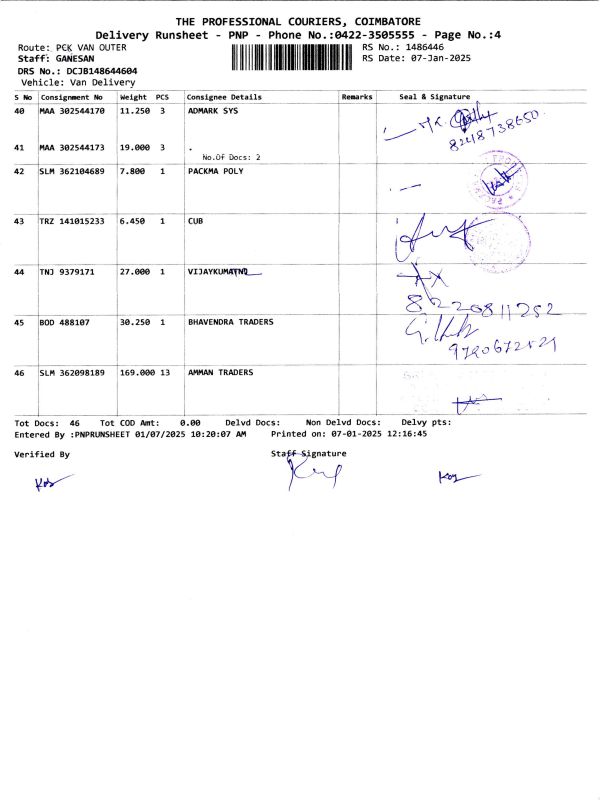 THE PROFESSIONAL COURIERS, COIMBATORE
Delivery Runsheet - PNP - Phone No.:0422-3505555 - Page No.:4
Route: PEK VAN OUTER RS No.: 1486446
Staff: GANESAN RS Date: 07-Jan-2025
DRS No.: DCJB148644604
Vehicle: Van Delivery
S No Consignment No Weight PCS Consignee Details Remarks Seal & Signature
40 MAA 302544170 11.250 3 ADMARK SYS
8248738650
41 MAA 302544173 19.000 3 .
No.Of Docs: 2
42 SLM 362104689 7.800 1 PACKMA POLY
43 TRZ 141015233 6.450 1 CUB
44 TNJ 9379171 27.000 1 VIJAYKUMAR
8220811252
45 BOD 488107 30.250 1 BHAVENDRA TRADERS
46 SLM 362098189 169.000 13 AMMAN TRADERS
Tot Docs: 46 Tot COD Amt: 0.00 Delvd Docs: Non Delvd Docs: Delvy pts:
Entered By :PNPRUNSHEET 01/07/2025 10:20:07 AM Printed on: 07-01-2025 12:16:45
Verified By Staff Signature